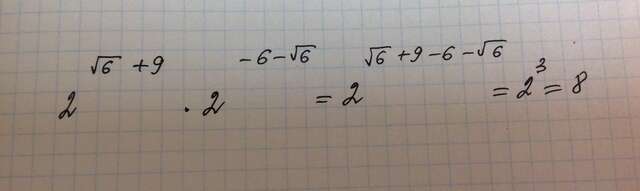 2^{√6 + 9} · 2^{-6-√6} = 2^{√6 + 9 - 6 - √6} = 2^3 = 8